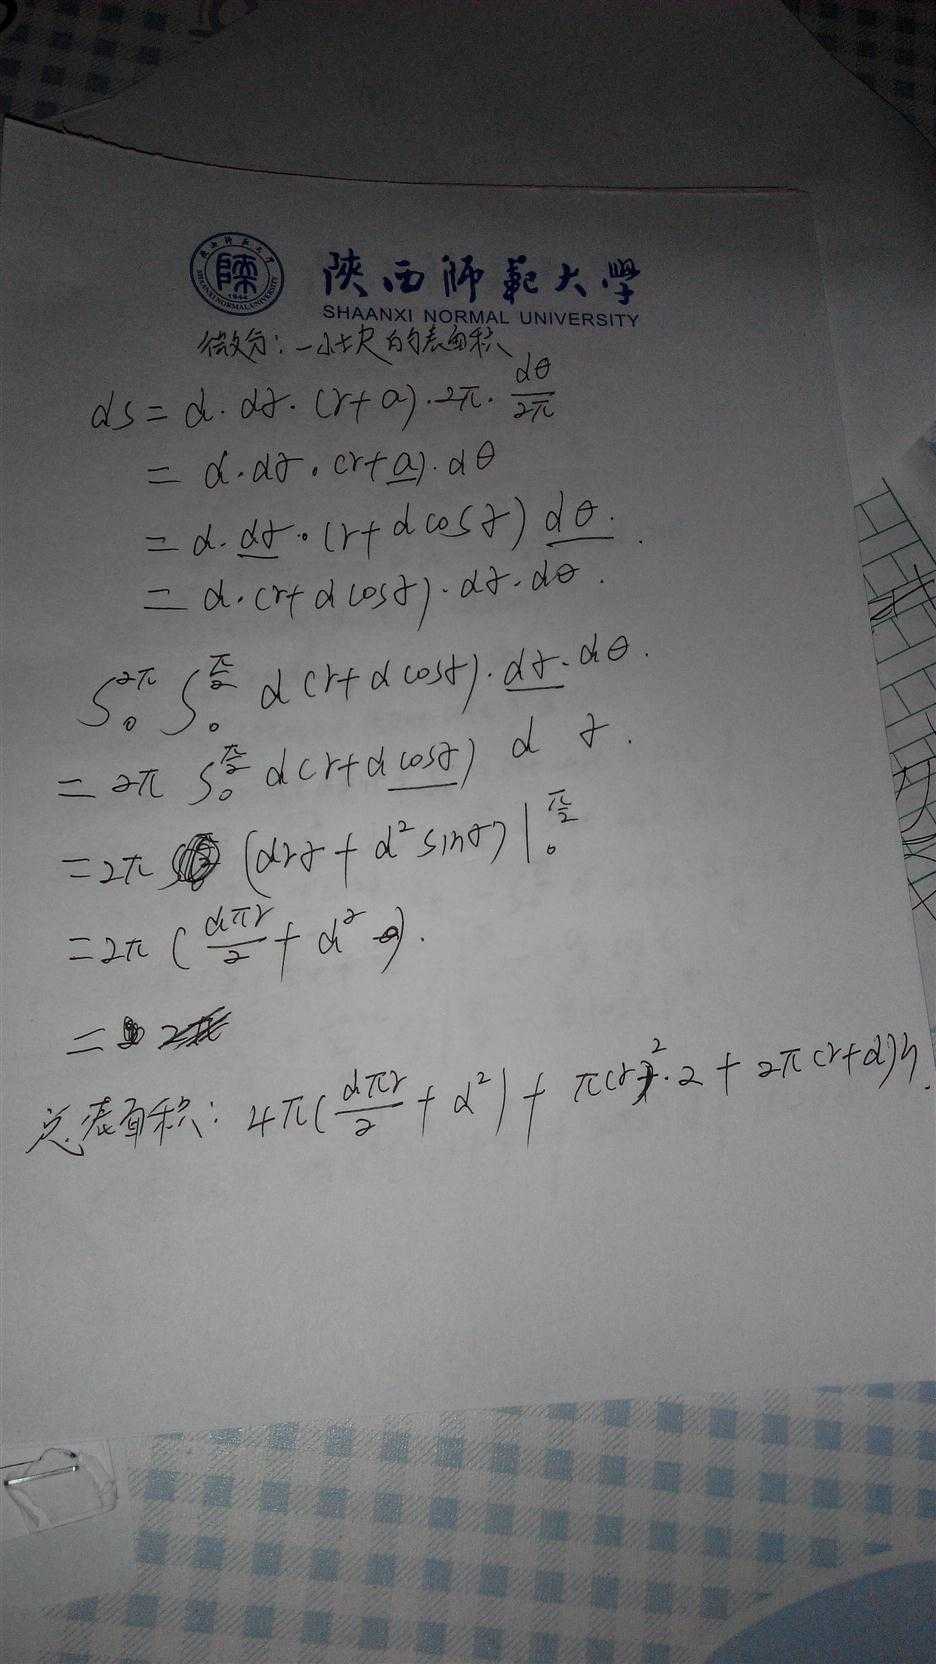 陝西師範大學
SHAANXI NORMAL UNIVERSITY
微分: 一小块的表面积
ds = d · dγ · (r+a) · 2π · dθ/2π
= d · dγ · (r+a) · dθ
= d · dγ · (r+dcosγ) dθ.
= d · (r+dcosγ) · dγ · dθ.
∫₀^2π ∫₀^π/2 d(r+dcosγ) · dγ · dθ.
= 2π ∫₀^π/2 d(r+dcosγ) d γ.
= 2π (drγ + d²sinγ)|₀^π/2
= 2π (dπr/2 + d²).
=
总表面积: 4π(dπr/2 + d²) + π(r)²·2 + 2π(r+d)h.